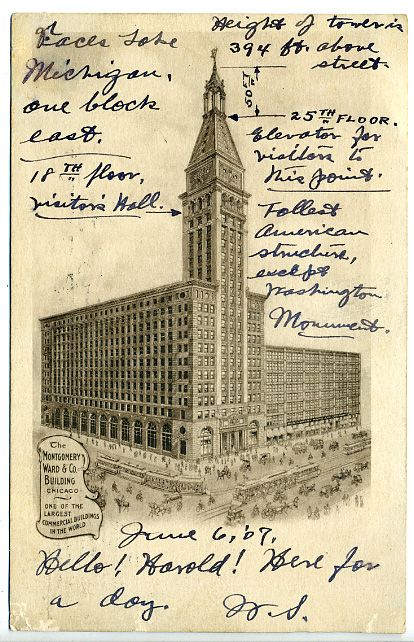 Faces Lake
Michigan,
one block
east.
18TH floor,
visitors Hall.
Height of tower is
394 ft. above
street.
90 ft
25TH FLOOR.
Elevator for
visitors to
this point.
Tallest
American
structure,
except
Washington
Monument.
The
MONTGOMERY
WARD & CO.
BUILDING
CHICAGO
ONE OF THE
LARGEST
COMMERCIAL BUILDINGS
IN THE WORLD
June 6, '07.
Hello! Harold! Here for
a day. W. S.